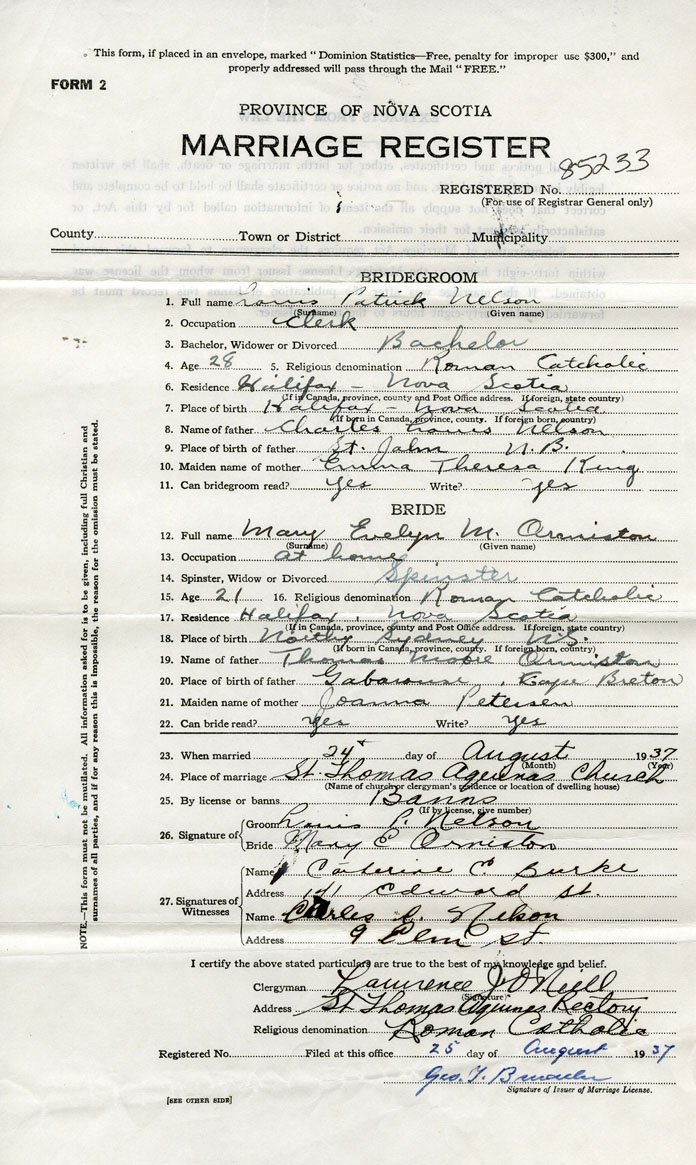 This form, if placed in an envelope, marked "Dominion Statistics—Free, penalty for improper use $300," and
properly addressed will pass through the Mail "FREE."
FORM 2
PROVINCE OF NOVA SCOTIA
MARRIAGE REGISTER
85233
REGISTERED No.
(For use of Registrar General only)
County Town or District Municipality
BRIDEGROOM
1. Full name Louis Patrick Nelson
(Surname) (Given name)
2. Occupation Clerk
3. Bachelor, Widower or Divorced Bachelor
4. Age 28 5. Religious denomination Roman Catcholic
6. Residence Halifax - Nova Scotia
(If in Canada, province, county and Post Office address. If foreign, state country)
7. Place of birth Halifax - Nova Scotia
(If born in Canada, province, county. If foreign born, country)
8. Name of father Charles Louis Nelson
9. Place of birth of father St John N.B.
10. Maiden name of mother Emma Theresa King
11. Can bridegroom read? yes Write? yes
BRIDE
12. Full name Mary Evelyn M. Ormiston
(Surname) (Given name)
13. Occupation at home
14. Spinster, Widow or Divorced Spinster
15. Age 21 16. Religious denomination Roman Catcholic
17. Residence Halifax, Nova Scotia
(If in Canada, province, county and Post Office address. If foreign, state country)
18. Place of birth North Sydney N.S.
(If born in Canada, province, county. If foreign born, country)
19. Name of father Thomas Ormiston
20. Place of birth of father Gabarouse, Cape Breton
21. Maiden name of mother Joanna Petersen
22. Can bride read? yes Write? yes
23. When married 24 day of August 1937
(Month) (Year)
24. Place of marriage St. Thomas Aquinas Church
(Name of church or clergyman's residence or location of dwelling house)
25. By license or banns Banns
(If by license, give number)
26. Signature of
Groom Louis P. Nelson
Bride Mary E Ormiston
27. Signatures of Witnesses
Name Catherine C. Burke
Address Edward St.
Name Charles L. Nelson
Address 9 Elm St.
I certify the above stated particulars are to the best of my knowledge and belief.
Clergyman Lawrence J O'Neill
(Signature)
Address St Thomas Aquinas Rectory
Religious denomination Roman Catholic
Registered No. Filed at this office 25 day of August 1937
Geo. T.
Signature of Issuer of Marriage License.
[SEE OTHER SIDE]
NOTE.—This form must not be mutilated. All information asked for is to be given, including full Christian and
surnames of all parties, and if for any reason this is impossible, the reason for the omission must be stated.